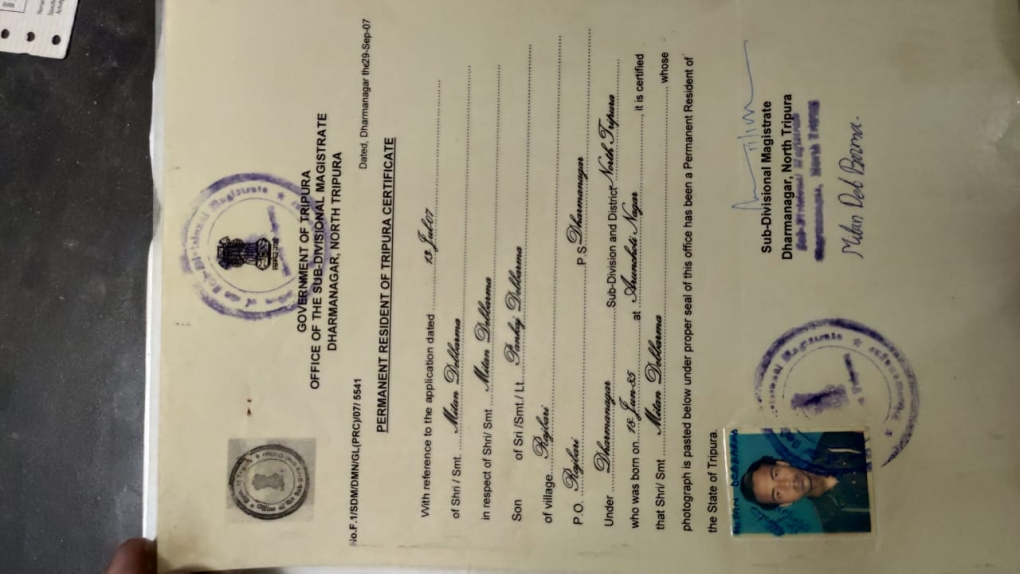 GOVERNMENT OF TRIPURA
OFFICE OF THE SUB-DIVISIONAL MAGISTRATE
DHARMANAGAR, NORTH TRIPURA
No.F.1/SDM/DMN/GL(PRC)/07/ 5541
Dated, Dharmanagar the29-Sep-07
PERMANENT RESIDENT OF TRIPURA CERTIFICATE
With reference to the application dated 13 Jul 07
of Shri / Smt. Mitan Debbarma
in respect of Shri/ Smt Mitan Debbarma
Son of Sri /Smt./ Lt. Pankaj Debbarma
of village Rajbari
P.O. Rajbari P.S Dharmanagar
Under Dharmanagar Sub-Division and District North Tripura
who was born on 18 Jun-85 at Arunchuti Nagar, it is certified
that Shri/ Smt Mitan Debbarma whose
photograph is pasted below under proper seal of this office has been a Permanent Resident of
the State of Tripura.
Sub-Divisional Magistrate
Dharmanagar, North Tripura
Sub-Divisional Magistrate
Dharmanagar, North Tripura
Mitan Deb Barma.
MITAN DEBBARMA